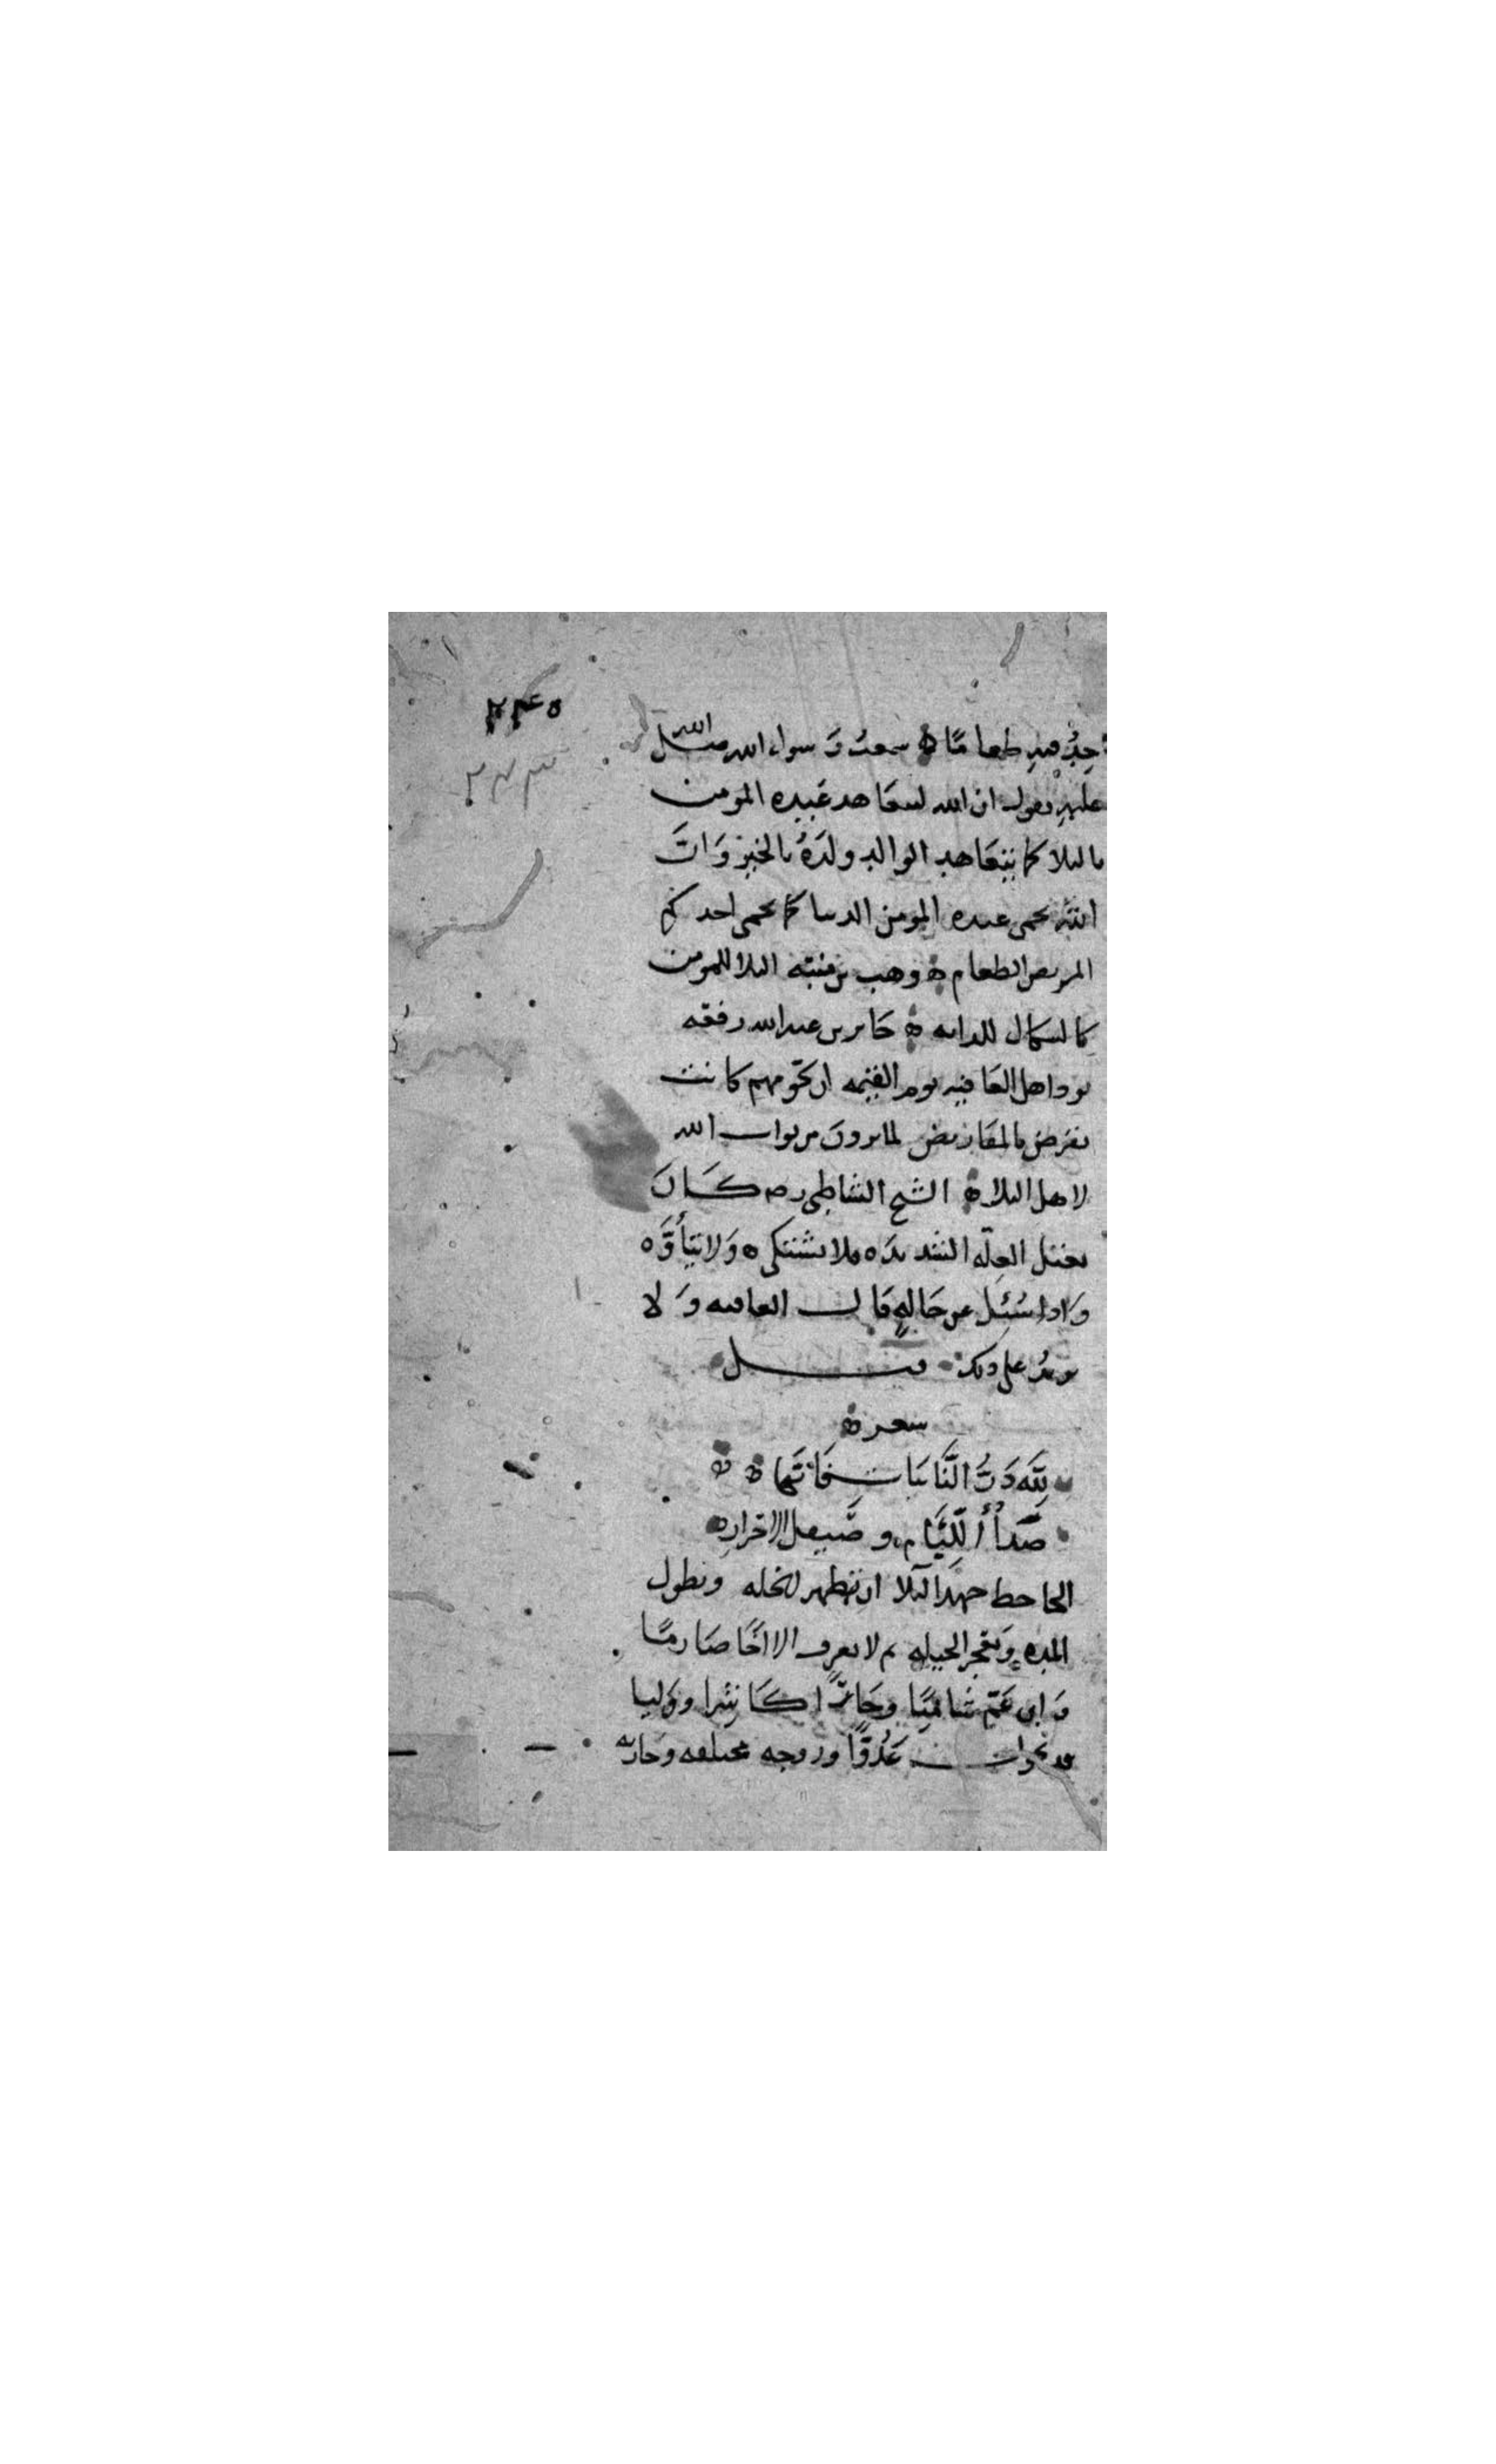 اجد فيه طعاما ه سمعت رسول الله صلى الله
عليه يقول ان الله ليتعاهد عبده المومن
بالبلا كما يتعاهد الوالد ولده بالخير وَانَّ
الله يحمى عبده المومن الدنيا كما يحمى احدكم
المريض الطعام ه وهب بن منبه البلا للمومن
كالشكال للدابه ه جابر بن عبد الله رفعه
يود اهل العافيه يوم القيمه ان لحومهم كانت
تقرض بالمقاريض لما يرون من ثواب الله
لاهل البلا ه الشيخ الشاطبى رحمه كَانَ
يعتل العلّه الشديدَه فلا يشتكى ه وَلا يتأوَّه
وَاذا سُئِل عن حَالهِ قال العافيه وَلا
يزيدُ على ذلك قيل
شعر ه
لِلّهِ دَرُّ النَّائبَات فَانّهَا ه ه
صَدَأُ اللِّئَام وصَيقل الاحرار ه
الجاحظ جهد البلا ان تظهر الخله وتطول
المده وَتعجز الحيله ثم لا تعرف الا اخًا صَارمًا
وَابن عَمّ شامتًا وجَارًا كَاشِرا ووَليا
قد تحول عَدُوًّا وزوجه مختلعه وجاريه